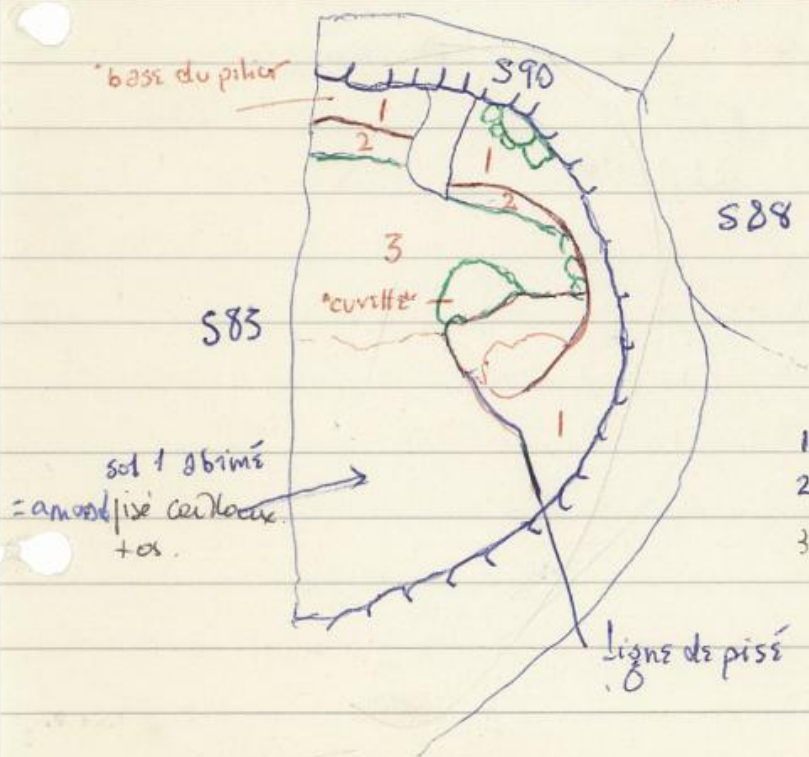 "base du pilier
S90
1
2
1
2
S88
3
"cuvette"
S85
1
sol 1 abimé
= amas pisé cailloux
+ os.
1
2
3
ligne de pisé